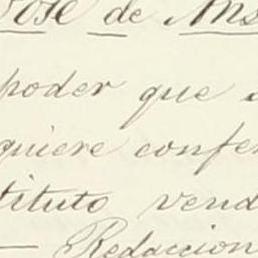 José de Ans
poder que
quiere confer
tituto vend
— Redaccion